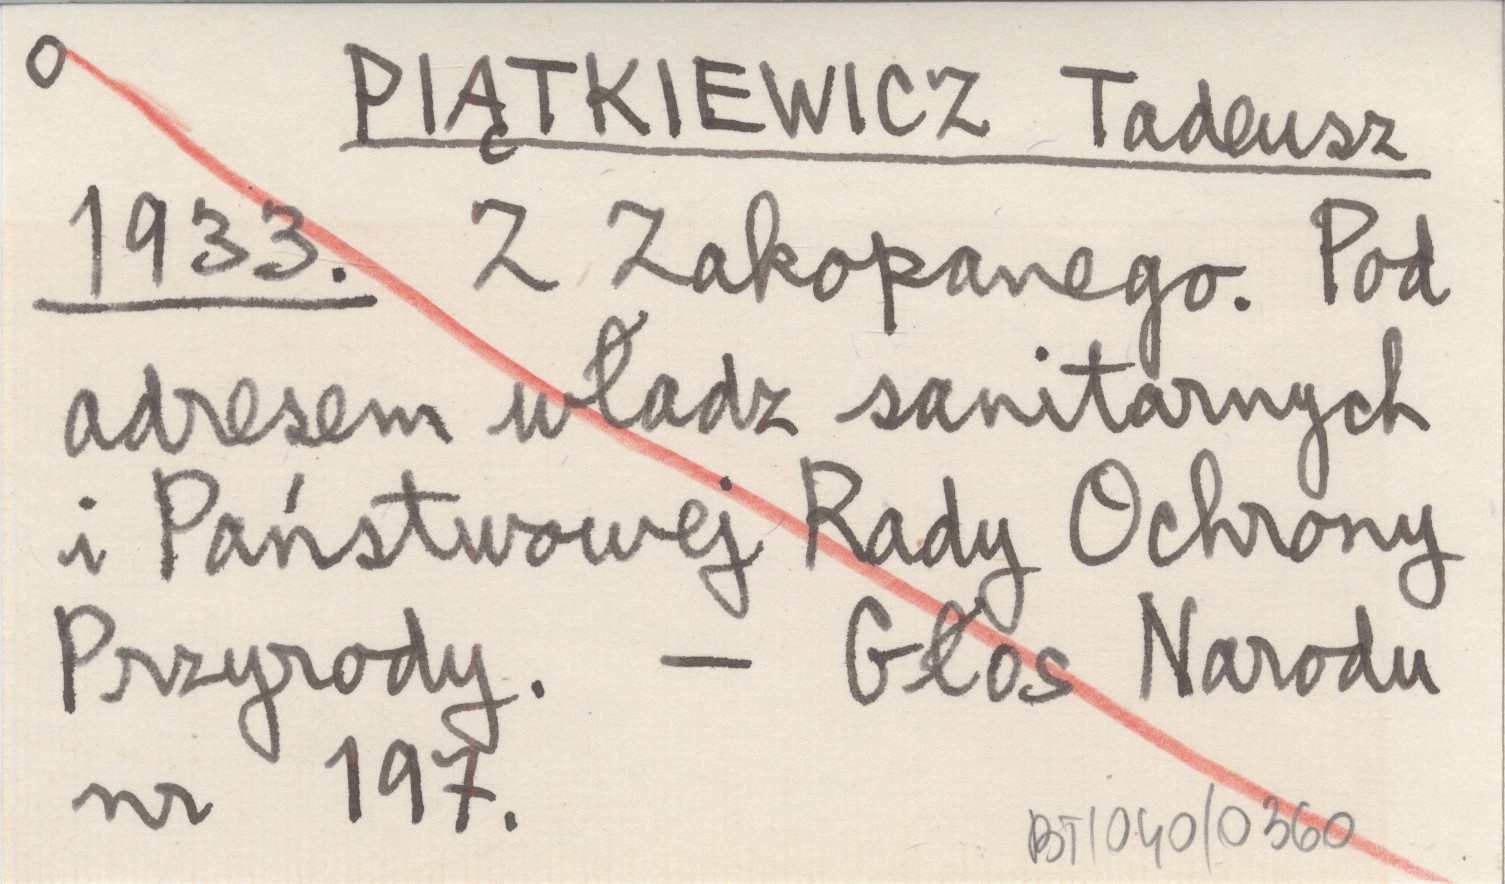 O PIĄTKIEWICZ Tadeusz
1933. Z Zakopanego. Pod
adresem władz sanitarnych
i Państwowej Rady Ochrony
Przyrody. — Głos Narodu
nr 197.
BT/040/0360